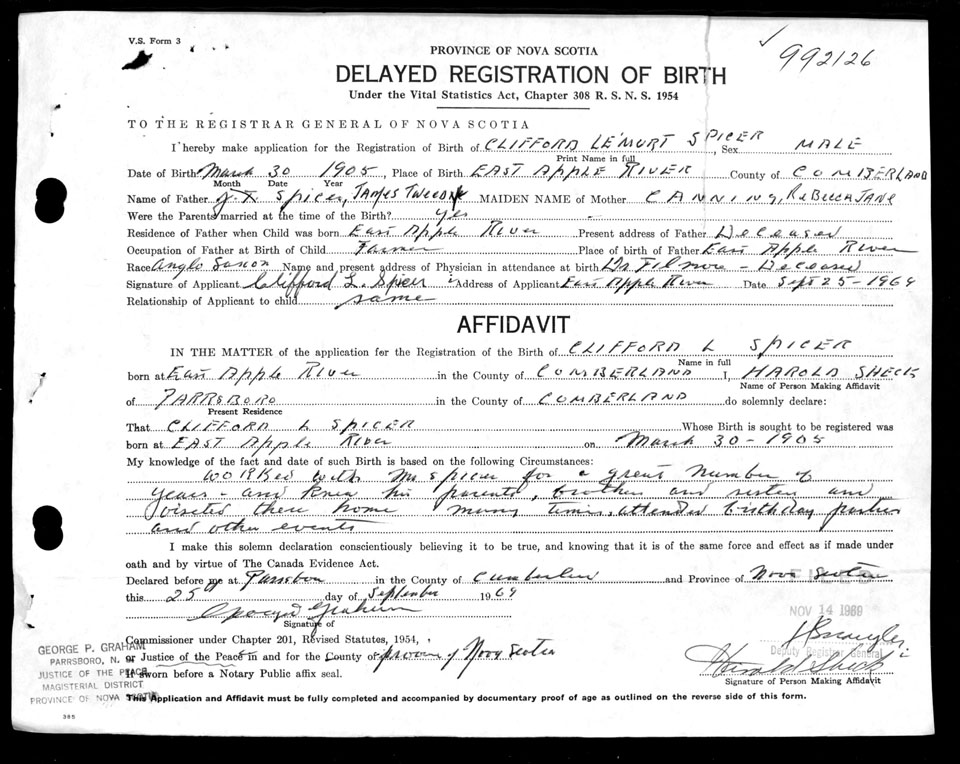 V.S. Form 3
992126
PROVINCE OF NOVA SCOTIA
DELAYED REGISTRATION OF BIRTH
Under the Vital Statistics Act, Chapter 308 R. S. N. S. 1954
TO THE REGISTRAR GENERAL OF NOVA SCOTIA
I hereby make application for the Registration of Birth of CLIFFORD LEMURT SPICER, Sex MALE
Print Name in full
Date of Birth March 30 1905, Place of Birth EAST APPLE RIVER County of CUMBERLAND
Month Date Year
Name of Father Spicer, JAMES MAIDEN NAME of Mother CANNING, REBECCA JANE
Were the Parents married at the time of the Birth? yes
Residence of Father when Child was born East Apple River Present address of Father Deceased
Occupation of Father at Birth of Child Farmer Place of birth of Father East Apple River
Race Anglo Saxon Name and present address of Physician in attendance at birth Dr Filmore - Deceased
Signature of Applicant Clifford L. Spicer Address of Applicant East Apple River Date Sept 25-1969
Relationship of Applicant to child same
AFFIDAVIT
IN THE MATTER of the application for the Registration of the Birth of CLIFFORD L SPICER
Name in full
born at East Apple River in the County of CUMBERLAND I, HAROLD SHECK
Name of Person Making Affidavit
of PARRSBORO in the County of CUMBERLAND do solemnly declare:
Present Residence
That CLIFFORD L SPICER Whose Birth is sought to be registered was
born at EAST Apple River on March 30-1905
My knowledge of the fact and date of such Birth is based on the following Circumstances:
WORKed with Mr Spicer for a great number of
years - and knew his parents, brothers and sisters and
visited there home many times, attended birthday parties
and other events
I make this solemn declaration conscientiously believing it to be true, and knowing that it is of the same force and effect as if made under
oath and by virtue of The Canada Evidence Act.
Declared before me at Parrsboro in the County of Cumberland and Province of Nova Scotia
this 25 day of September 1969
FILED
NOV 14 1969
George Graham
Signature of
Deputy Registrar General
Commissioner under Chapter 201, Revised Statutes, 1954,
or Justice of the Peace in and for the County of province of Nova Scotia
If sworn before a Notary Public affix seal.
Harold Sheck
Signature of Person Making Affidavit
GEORGE P. GRAHAM
PARRSBORO, N. S.
JUSTICE OF THE PEACE
MAGISTERIAL DISTRICT
PROVINCE OF NOVA SCOTIA
This Application and Affidavit must be fully completed and accompanied by documentary proof of age as outlined on the reverse side of this form.
385